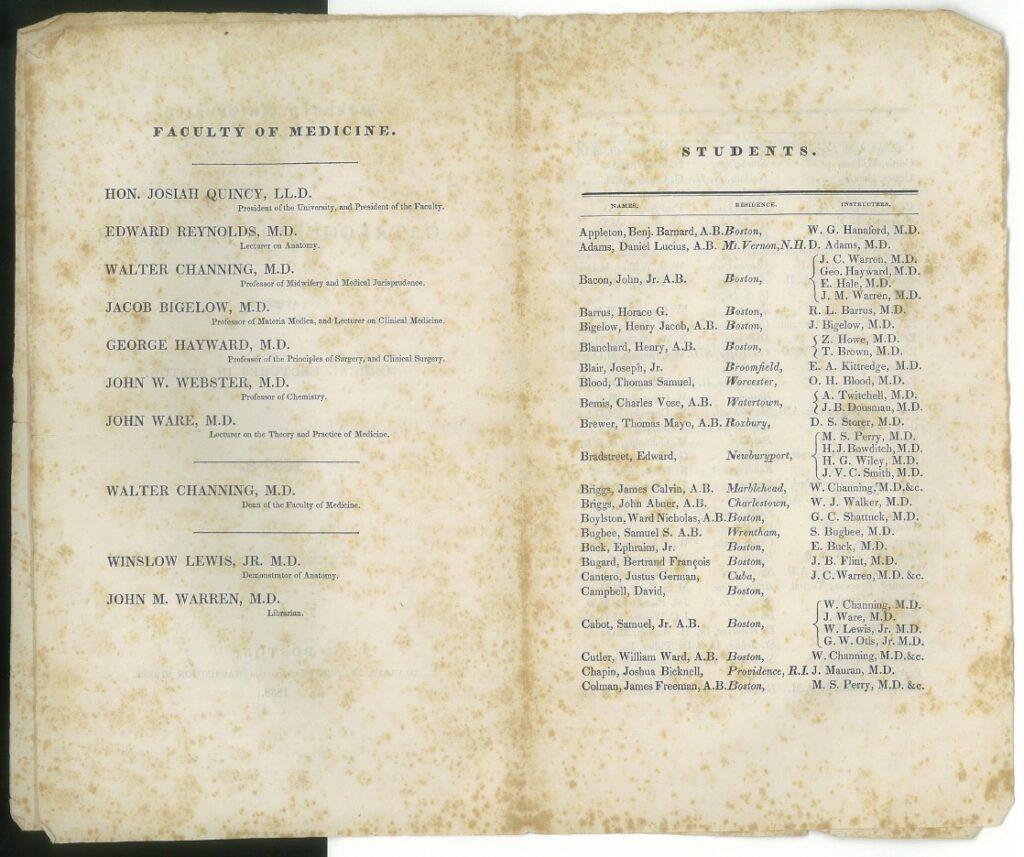 FACULTY OF MEDICINE.
HON. JOSIAH QUINCY, LL.D.
President of the University, and President of the Faculty.
EDWARD REYNOLDS, M.D.
Lecturer on Anatomy.
WALTER CHANNING, M.D.
Professor of Midwifery and Medical Jurisprudence.
JACOB BIGELOW, M.D.
Professor of Materia Medica, and Lecturer on Clinical Medicine.
GEORGE HAYWARD, M.D.
Professor of the Principles of Surgery, and Clinical Surgery.
JOHN W. WEBSTER, M.D.
Professor of Chemistry.
JOHN WARE, M.D.
Lecturer on the Theory and Practice of Medicine.
WALTER CHANNING, M.D.
Dean of the Faculty of Medicine.
WINSLOW LEWIS, JR. M.D.
Demonstrator of Anatomy.
JOHN M. WARREN, M.D.
Librarian.
STUDENTS.
NAMES. RESIDENCE. INSTRUCTERS.
Appleton, Benj. Barnard, A.B. Boston, W. G. Hanaford, M.D.
Adams, Daniel Lucius, A.B. Mt. Vernon, N.H. D. Adams, M.D.
J. C. Warren, M.D.
Geo. Hayward, M.D.
Bacon, John, Jr. A.B. Boston,
E. Hale, M.D.
J. M. Warren, M.D.
Barrus, Horace G. Boston, R. L. Barrus, M.D.
Bigelow, Henry Jacob, A.B. Boston, J. Bigelow, M.D.
Z. Howe, M.D.
Blanchard, Henry, A.B. Boston,
T. Brown, M.D.
Blair, Joseph, Jr. Broomfield, E. A. Kittredge, M.D.
Blood, Thomas Samuel, Worcester, O. H. Blood, M.D.
A. Twitchell, M.D.
Bemis, Charles Vose, A.B. Watertown,
J. B. Dousman, M.D.
Brewer, Thomas Mayo, A.B. Roxbury, D. S. Storer, M.D.
M. S. Perry, M.D.
H. J. Bowditch, M.D.
Bradstreet, Edward, Newburyport,
H. G. Wiley, M.D.
J. V. C. Smith, M.D.
Briggs, James Calvin, A.B. Marblehead, W. Channing, M.D. &c.
Briggs, John Abner, A.B. Charlestown, W. J. Walker, M.D.
Boylston, Ward Nicholas, A.B. Boston, G. C. Shattuck, M.D.
Bugbee, Samuel S. A.B. Wrentham, S. Bugbee, M.D.
Buck, Ephraim, Jr. Boston, E. Buck, M.D.
Bugard, Bertrand François Boston, J. B. Flint, M.D.
Cantero, Justus German, Cuba, J. C. Warren, M.D. &c.
Campbell, David, Boston,
W. Channing, M.D.
J. Ware, M.D.
Cabot, Samuel, Jr. A.B. Boston,
W. Lewis, Jr. M.D.
G. W. Otis, Jr. M.D.
Cutler, William Ward, A.B. Boston, W. Channing, M.D. &c.
Chapin, Joshua Bicknell, Providence, R.I. J. Mauran, M.D.
Colman, James Freeman, A.B. Boston, M. S. Perry, M.D. &c.